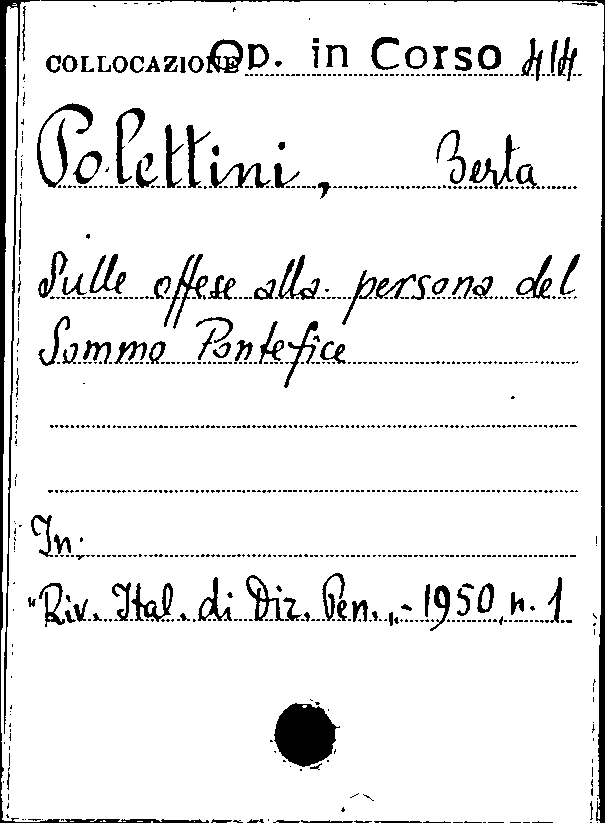 COLLOCAZIONE Op. in Corso 414
Polettini, Berta
Sulle offese alla persona del
Sommo Pontefice
In:
"Riv. Ital. di Dir. Pen.„- 1950, n. 1